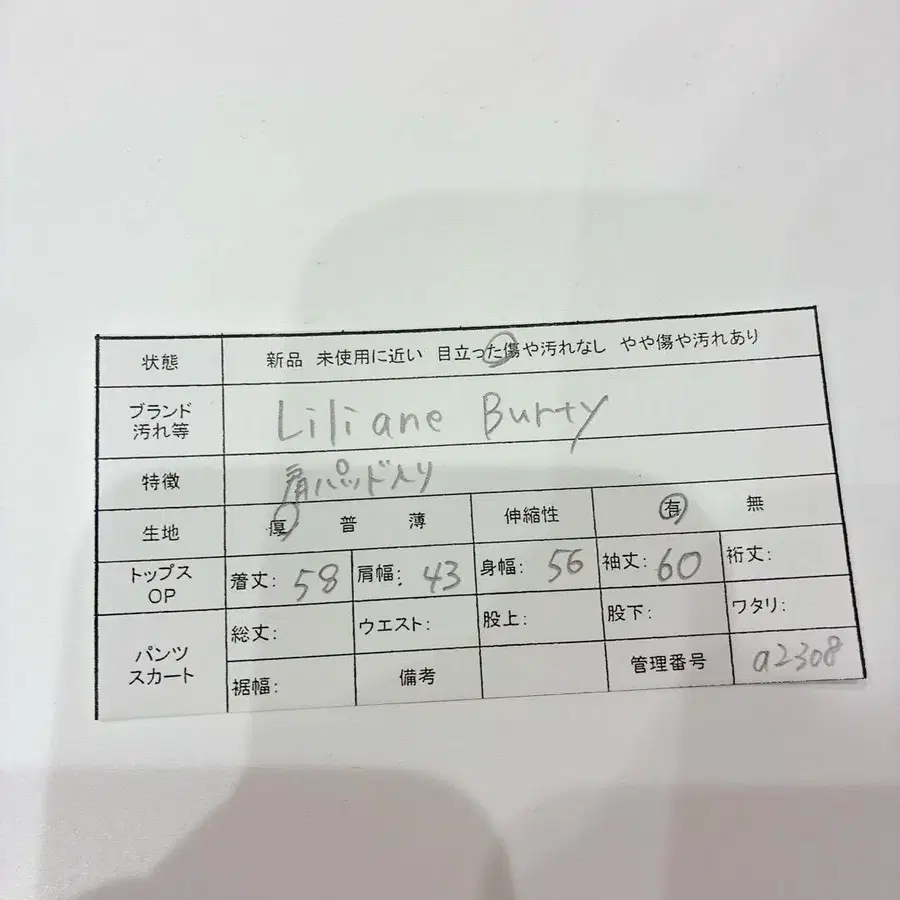 状態 新品 未使用に近い 目立った傷や汚れなし やや傷や汚れあり
ブランド
汚れ等
Liliane Burty
特徴 肩パッド入り
生地 厚 普 薄 伸縮性 有 無
トップス
OP
着丈: 58 肩幅: 43 身幅: 56 袖丈: 60 裄丈:
パンツ
スカート
総丈: ウエスト: 股上: 股下: ワタリ:
裾幅: 備考 管理番号 a2308